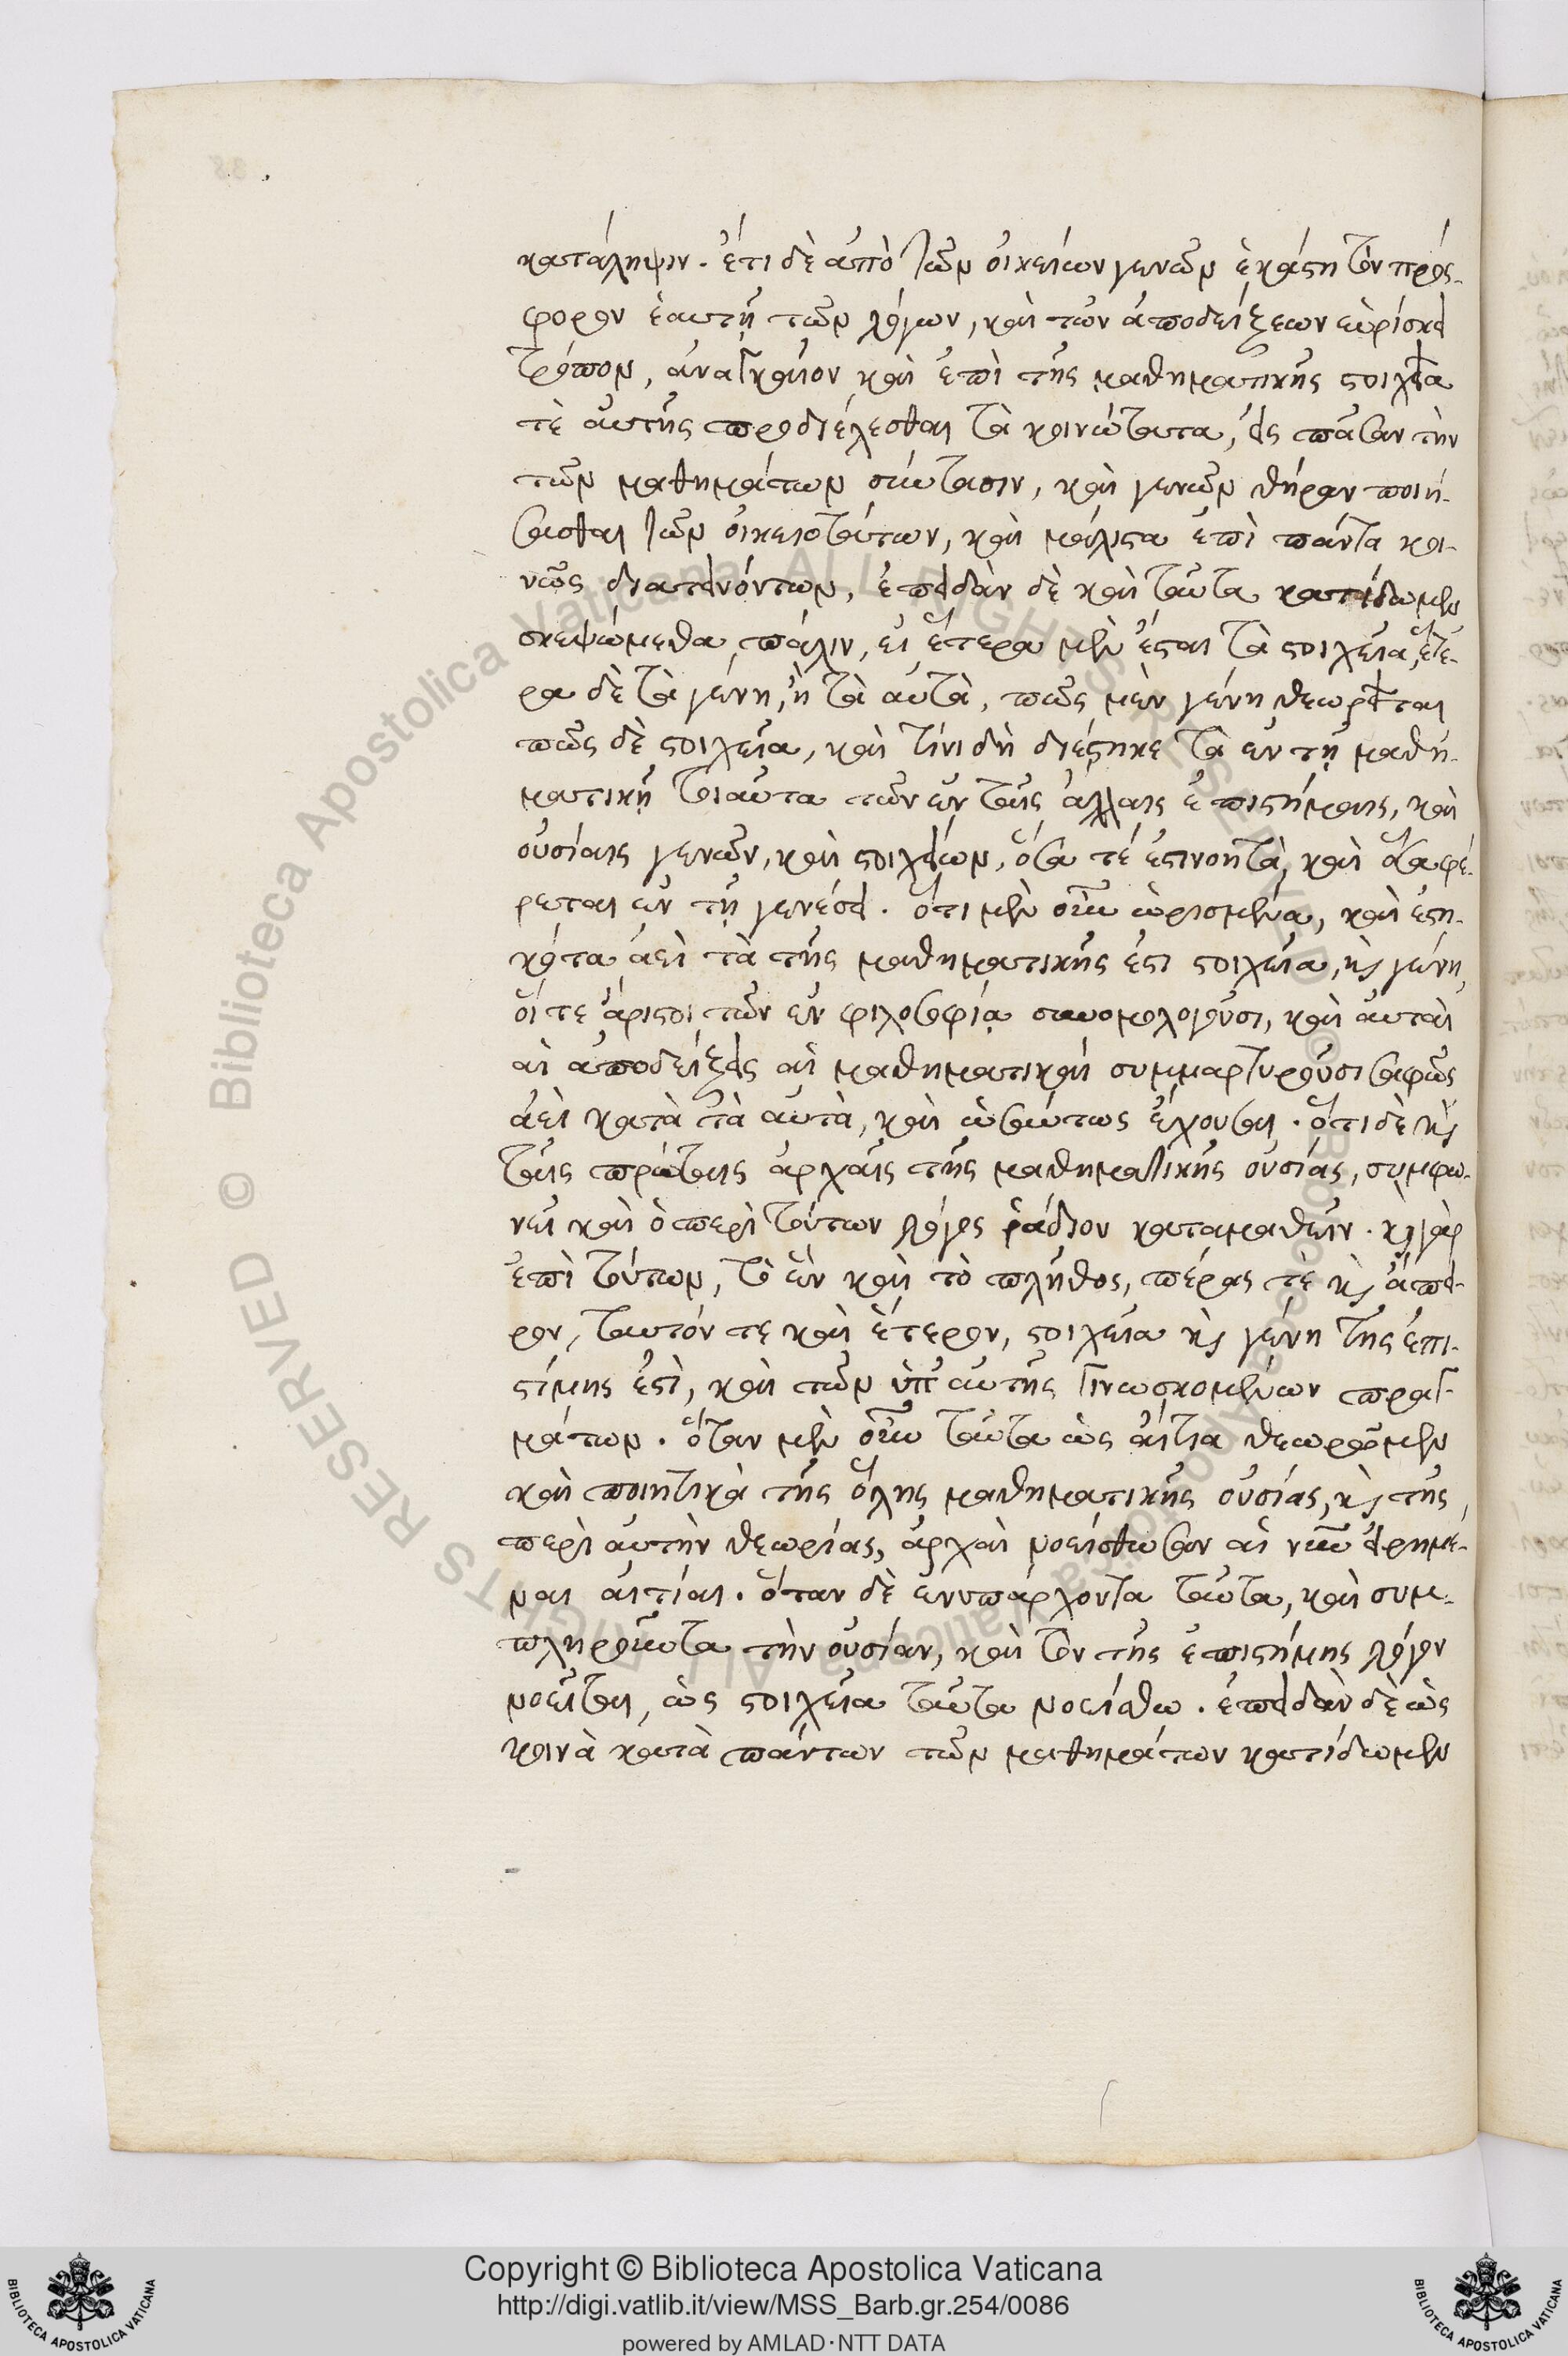 κατάληψιν. ἔτι δὲ ἀπὸ τῶν οἰκείων γενῶν ἑκάστη τὸν πρόσ-
φορον ἑαυτῇ τῶν λόγων, καὶ τῶν ἀποδείξεων εὑρίσκει
τρόπον, ἀναγκαῖον καὶ ἐπὶ τῆς μαθηματικῆς στοιχεῖα
τὲ αὐτῆς προδιελέσθαι τὰ κοινώτατα, εἰς πᾶσαν τὴν
τῶν μαθημάτων σύστασιν, καὶ γενῶν θήραν ποιή-
σασθαι τῶν οἰκειοτάτων, καὶ μάλιστα ἐπὶ πάντα κοι-
νῶς διατεινόντων, ἐπειδὰν δὲ καὶ ταῦτα κατίδωμεν
σκεψώμεθα πάλιν, εἰ ἕτερα μὲν ἔσται τὰ στοιχεῖα, ἕτε-
ρα δὲ τὰ γένη, ἢ τὰ αὐτὰ, πῶς μὲν γένη θεωρεῖται
πῶς δὲ στοιχεῖα, καὶ τίνι δὴ διέστηκε τὰ ἐν τῇ μαθη-
ματικῇ τοιαῦτα τῶν ἐν ταῖς ἄλλαις ἐπιστήμαις, καὶ
οὐσίαις γενῶν, καὶ στοιχείων, ὅσα τέ ἐστι νοητὰ, καὶ ὅσα φέ-
ρεται ἐν τῇ γενέσει. ὅτι μὲν οὖν ὡρισμένα, καὶ ἑστη-
κότα ἀεὶ τὰ τῆς μαθηματικῆς ἐστι στοιχεῖα, καὶ γένη,
οἵ τε ἄριστοι τῶν ἐν φιλοσοφίᾳ συνομολογοῦσι, καὶ αὐταὶ
αἱ ἀποδείξεις αἱ μαθηματικαὶ συμμαρτυροῦσι σαφῶς
ἀεὶ κατὰ τὰ αὐτὰ, καὶ ὡσαύτως ἔχουσαι. ὅτι δὲ καὶ
ταῖς πρώταις ἀρχαῖς τῆς μαθηματικῆς οὐσίας, συμφω-
νεῖ καὶ ὁ περὶ τούτων λόγος ῥάδιον καταμαθεῖν. καὶ γὰρ
ἐπὶ τούτων, τὸ ἓν καὶ τὸ πλῆθος, πέρας τὲ καὶ ἄπει-
ρον, ταυτόν τε καὶ ἕτερον, στοιχεῖα καὶ γένη τῆς ἐπι-
στίμης ἐστὶ, καὶ τῶν ὑπ' αὐτῆς γινωσκομένων πραγ-
μάτων. ὅταν μὲν οὖν ταῦτα ὡς αἴτια θεωροῦμεν
καὶ ποιητικὰ τῆς ὅλης μαθηματικῆς οὐσίας, καὶ τῆς
περὶ αὐτὴν θεωρίας, ἀρχαὶ νοείσθωσαν αἱ νῦν εἰρημέ-
ναι αἰτίαι. ὅταν δὲ ἐνυπάρχοντα ταῦτα, καὶ συμ-
πληροῦντα τὴν οὐσίαν, καὶ τὸν τῆς ἐπιστήμης λόγον
νοεῖται, ὡς στοιχεῖα ταῦτα νοείσθω. ἐπειδὰν δὲ ὡς
κοινὰ κατὰ πάντων τῶν μαθημάτων κατίδωμεν
Copyright © Biblioteca Apostolica Vaticana
http://digi.vatlib.it/view/MSS_Barb.gr.254/0086
powered by AMLAD·NTT DATA